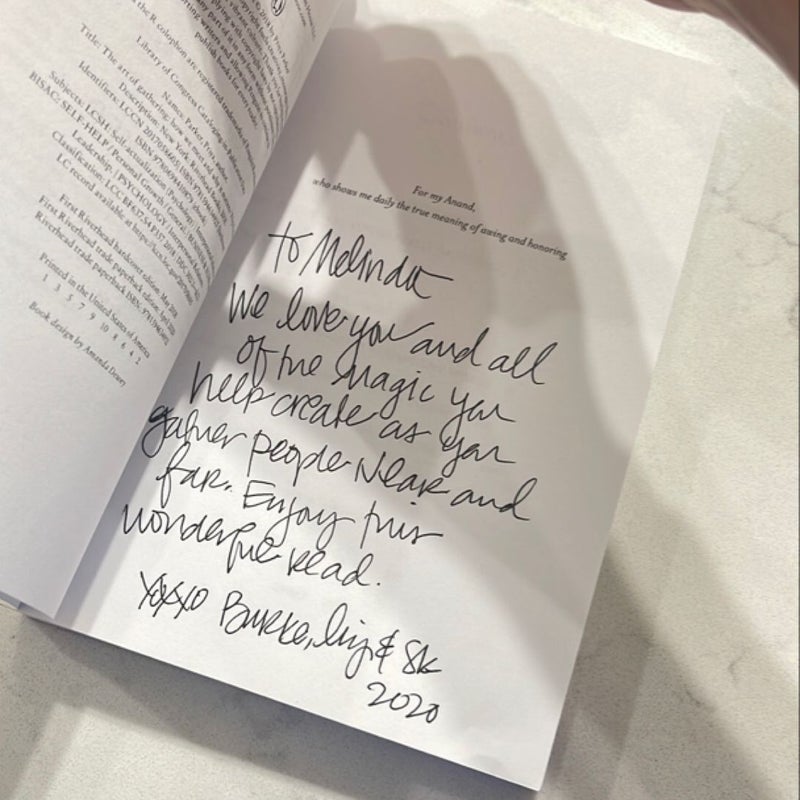 the R colophon are registered trademarks of
Library of Congress Cataloging-in-Publication
Names: Parker, Priya,
Title: The art of gathering: how we meet and
Description: New York:
Identifiers: LCCN
Subjects: LCSH: Self-actualization
BISAC: SELF-HELP / Personal Growth / General. |
Leadership. | PSYCHOLOGY /
Classification: LCC
LC record available at https://
First Riverhead hardcover edition: May 2018
First Riverhead trade paperback edition: April
Riverhead trade paperback ISBN:
Printed in the United States of America
1 3 5 7 9 10 8 6 4 2
Book design by Amanda Dewey
For my Anand,
who shows me daily the true meaning of awing and honoring
to Melinda
We love you and all
of the magic you
help create as you
gather people near and
far. Enjoy this
wonderful read.
xoxxo Burke, liz & Sk
2020